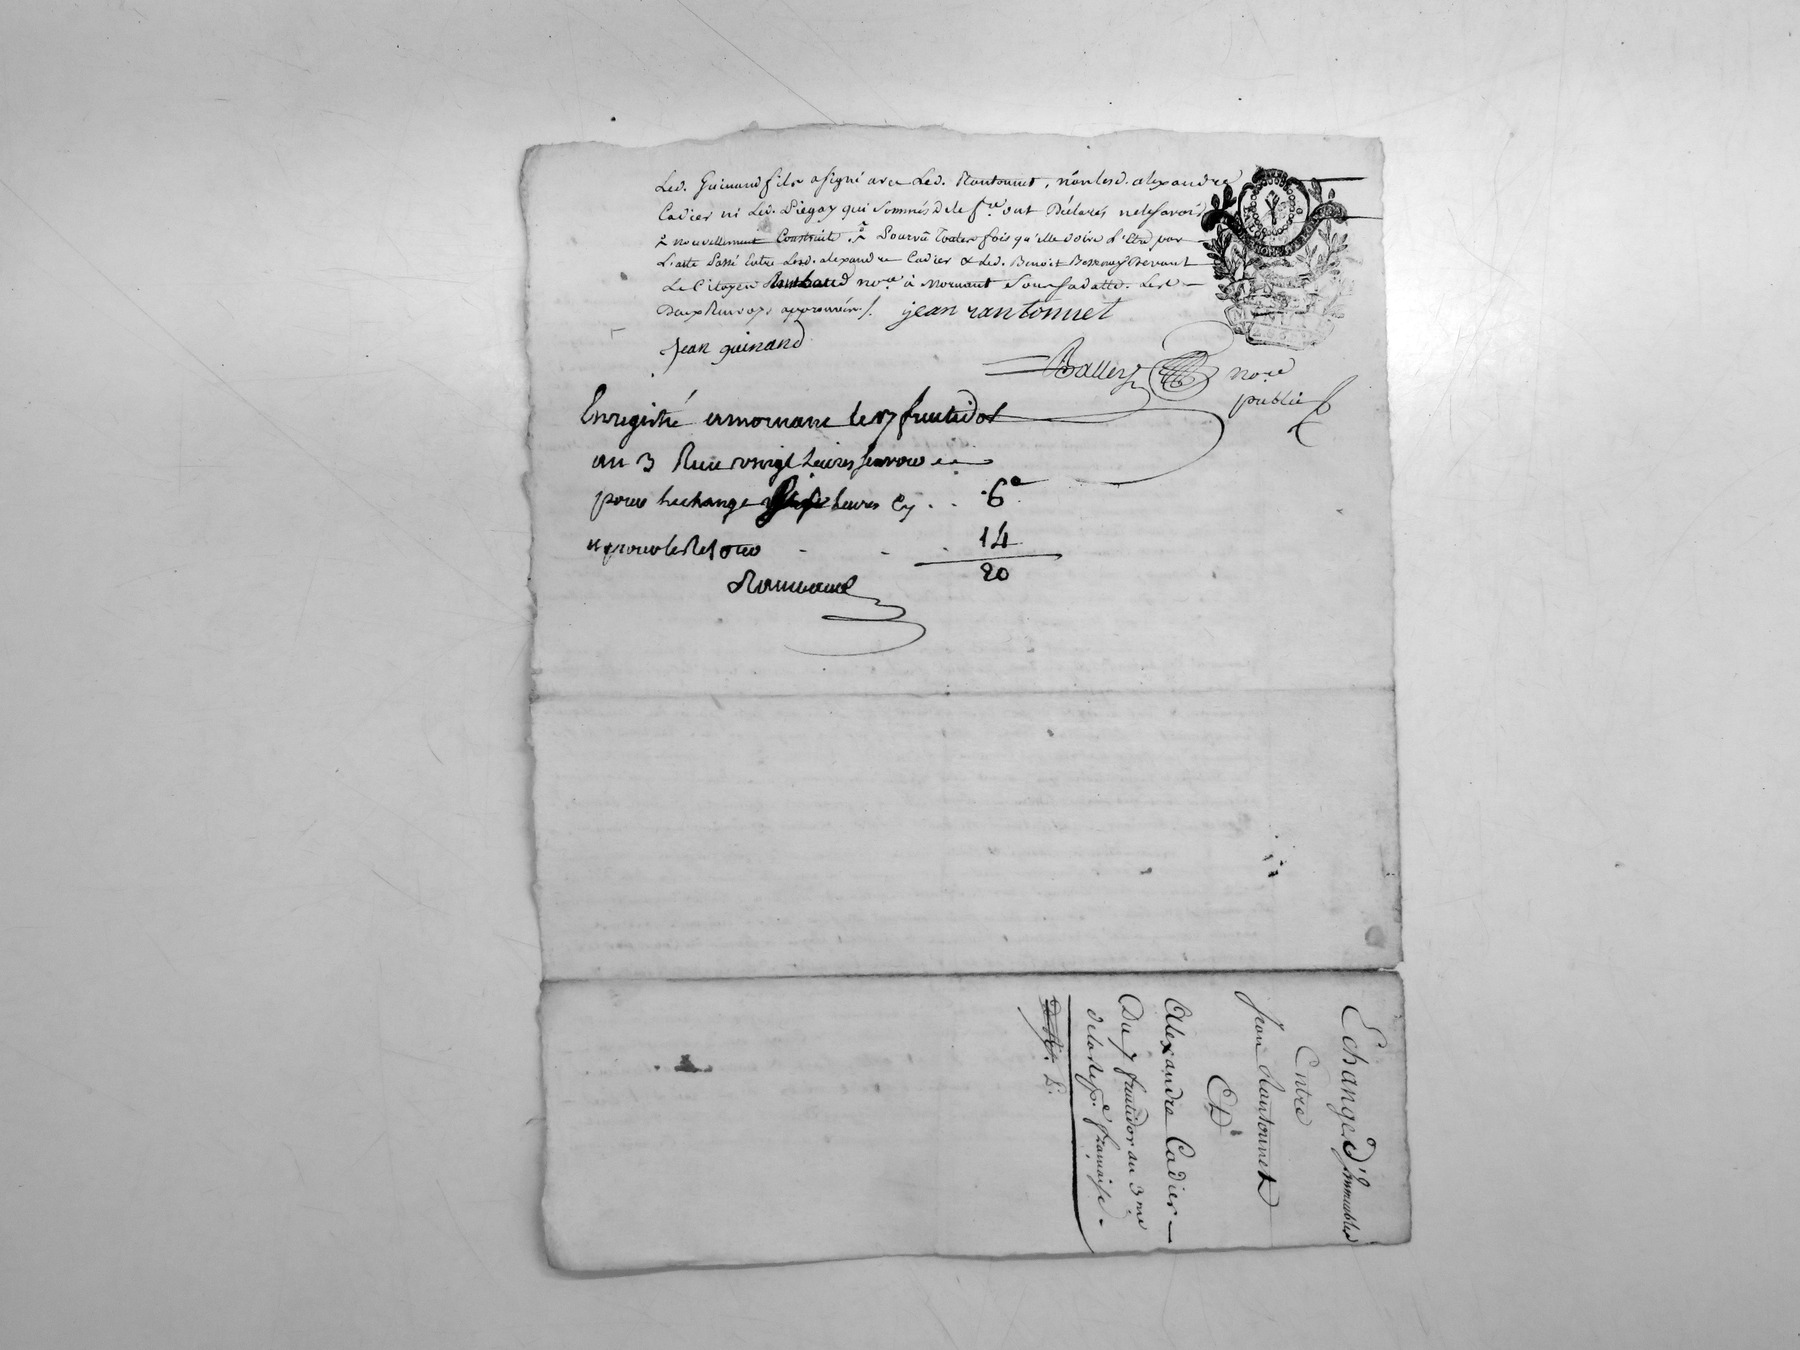 Led. Guinand fils a signé avec Led. Rantonnet, non lesd. alexandre
Cadier ni Led. Piegay qui sommés de le f.re ont Déclarés ne le savoir
nouvellement Construit. Pourvu toutes fois qu'elle doive l'Etre par
L'acte Passé Entre Lesd. alexandre Cadier & Led. Benoit Devant
Le Citoyen no.re à Mornant Sous sa datte. Les
Deux Renvoys approuvés /. jean rantonnet
jean guinand
Ballety no.re
public
Enregistré a mornant le 17 fructidor
an 3 Reçu vingt Livres
pour Lechange six Livres Cy . . 6
et pour le Retour - - . 14
20
Echange D'immeubles
Entre
Jean Rantonnet
Et
Alexandre Cadier
Du 7 fructidor an 3me
de la Rep.e françoise.